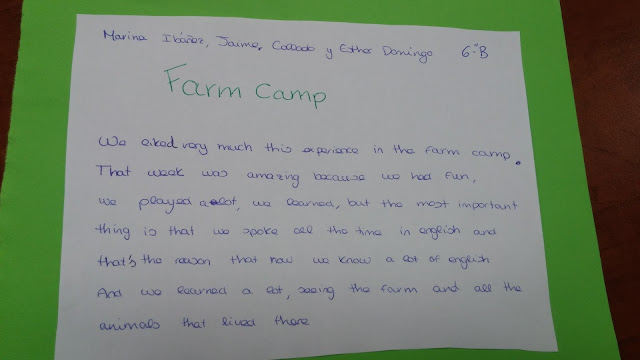 Marina Ibáñez, Jaime Collado y Esther Domingo 6ºB
Farm Camp
We liked very much this experience in the farm camp.
That week was amazing because we had fun,
we played a lot, we learned, but the most important
thing is that we spoke all the time in english and
that's the reason that now we know a lot of english
And we learned a lot, seeing the farm and all the
animals that lived there